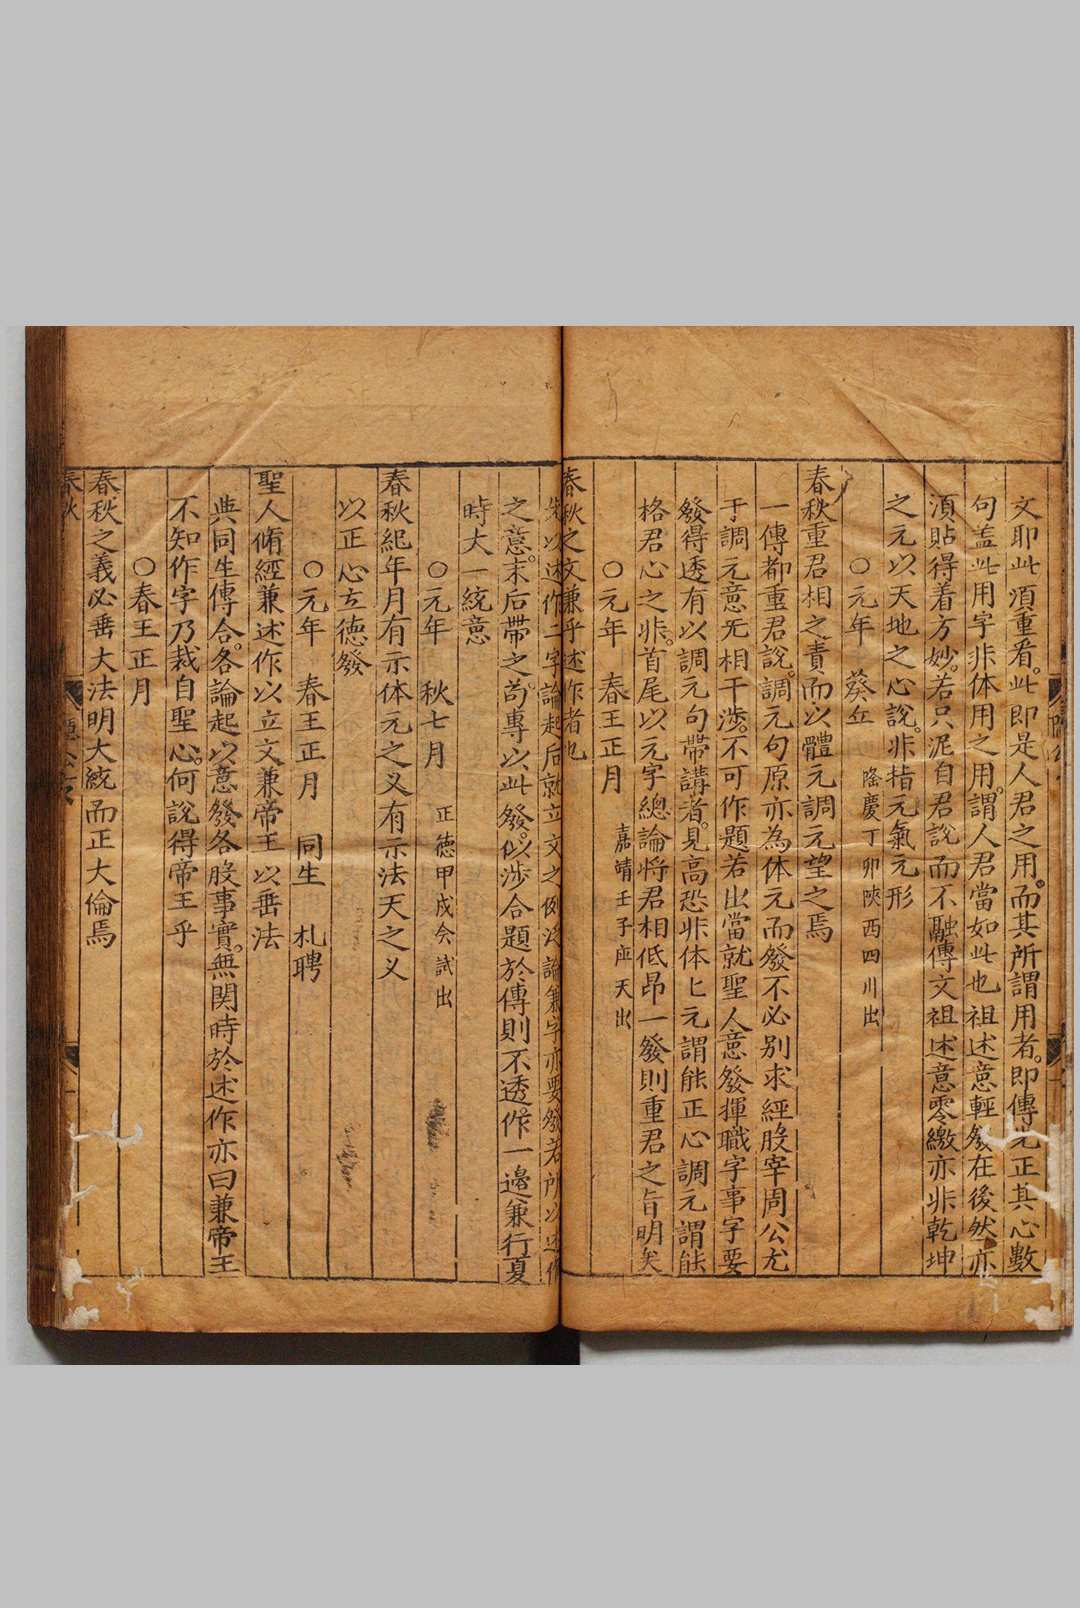 文耶此須重看此即是人君之用而其所謂用者即傳先正其心數
句盖此用字非体用之用謂人君當如此也祖述意輕發在後然亦
湏貼得着方妙若只泥自君說而不融傳文祖述意零繳亦非乾坤
之元以天地之心說非指元氣元形
○元年 葵丘 隆慶丁卯陝西四川出
春秋重君相之責而以體元調元望之焉
一傳都重君說調元句原亦為体元而發不必別求經股宰周公尤
于調元意无相干涉不可作題若出當就聖人意發揮職字事字要
發得透有以調元句帶講者見高恐非体匕元謂能正心調元謂能
格君心之非首尾以元字總論將君相低昂一發則重君之旨明矣
○元年 春王正月 嘉靖壬子應天出
春秋之文兼乎述作者也
先以述作二字論起后就立文之例泛論兼字亦要發若所以述作
之意末后帶之苟專以此發似涉合題於傳則不透作一邉兼行夏
時大一統意
○元年 秋七月 正德甲戌会試出
春秋紀年月有示体元之义有示法天之义
以正心立德發
○元年 春王正月 同生 札聘
聖人脩經兼述作以立文兼帝王以垂法
與同生傳合各論起以意發各股事實無関時於述作亦曰兼帝王
不知作字乃裁自聖心何說得帝王乎
○春王正月
春秋之義必垂大法明大統而正大倫焉
春秋